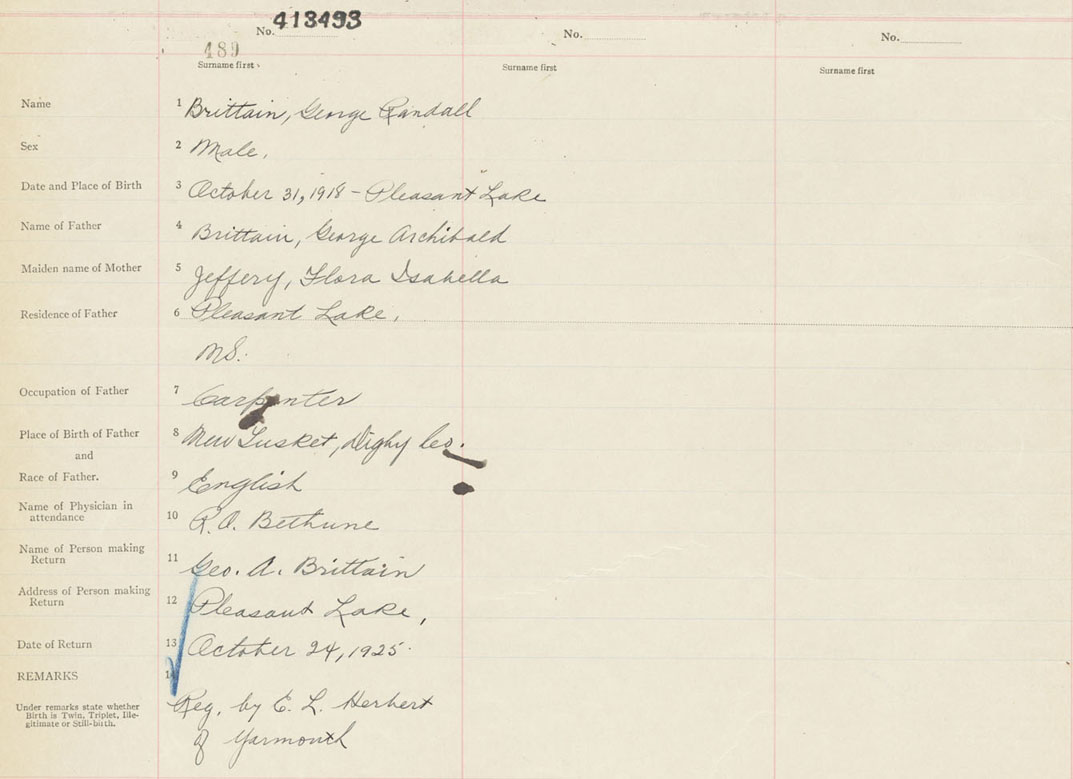 No. 413493
No.
No.
489
Surname first
Surname first
Surname first
Name 1 Brittain, George Randall
Sex 2 Male.
Date and Place of Birth 3 October 31, 1918 - Pleasant Lake
Name of Father 4 Brittain, George Archibald
Maiden name of Mother 5 Jeffery, Flora Isabella
Residence of Father 6 Pleasant Lake,
N.S.
Occupation of Father 7 Carpenter
Place of Birth of Father 8 New Tusket, Digby Co.
and
Race of Father. 9 English
Name of Physician in
attendance 10 R.A. Bethune
Name of Person making
Return 11 Geo. A. Brittain
Address of Person making
Return 12 Pleasant Lake,
Date of Return 13 October 24, 1925.
REMARKS 14
Under remarks state whether
Birth is Twin, Triplet, Ille-
gitimate or Still-birth.
Reg. by E. L. Herbert
of Yarmouth